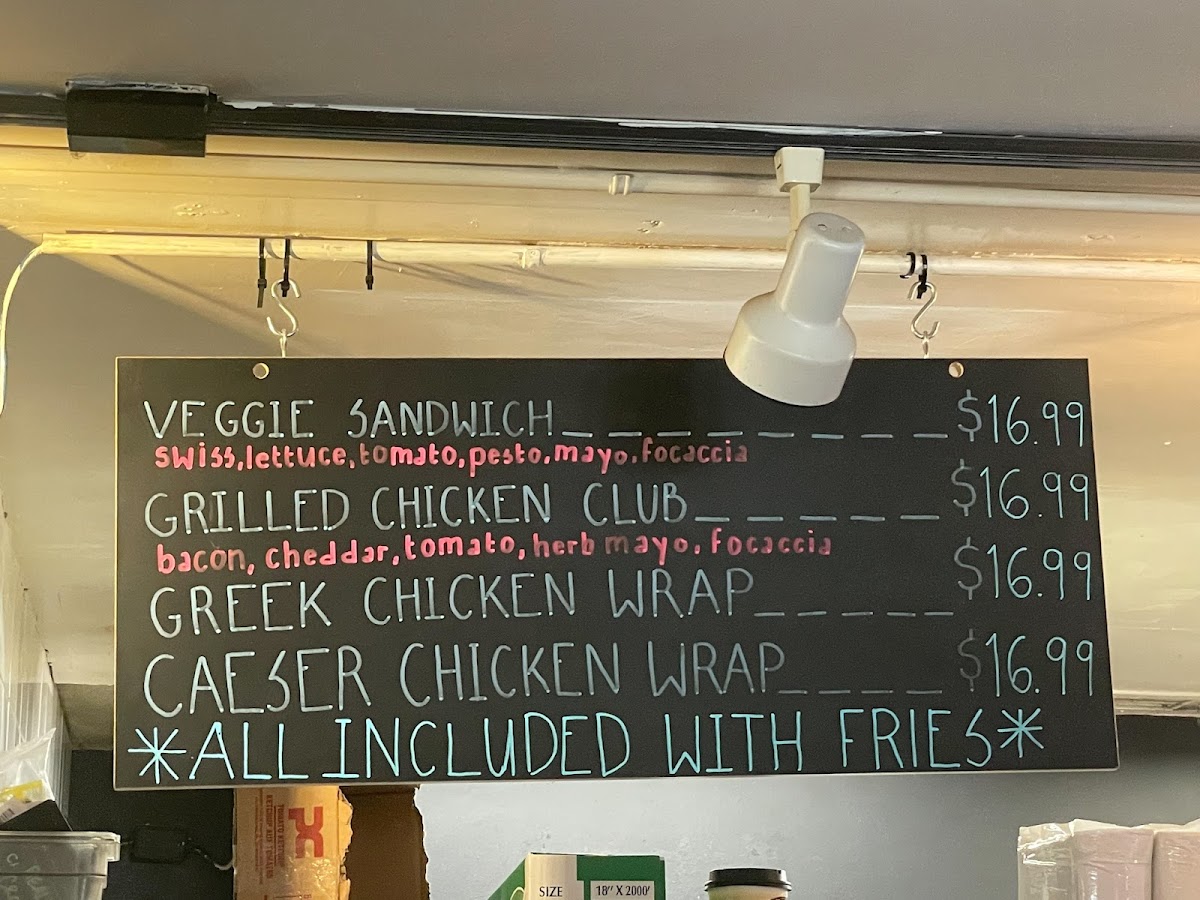 VEGGIE SANDWICH________$16.99
swiss,lettuce,tomato,pesto,mayo,focaccia
GRILLED CHICKEN CLUB_____$16.99
bacon, cheddar, tomato, herb mayo, focaccia
GREEK CHICKEN WRAP_____$16.99
CAESER CHICKEN WRAP____$16.99
*ALL INCLUDED WITH FRIES*
PC
TOMATO KETCHUP
SIZE 18" X 2000'